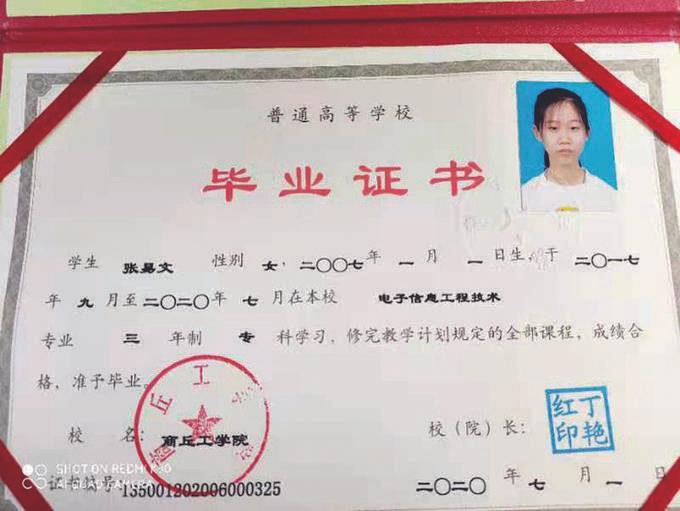 普通高等学校
毕业证书
学生 张易文 性别 女，二〇〇七年 一 月 一 日生，于 二〇一七
年 九 月至二〇二〇年 七 月在本校 电子信息工程技术
专业 三 年制 专 科学习，修完教学计划规定的全部课程，成绩合
格，准予毕业。
丘工
校 名： 商丘工学院
校（院）长：
丁艳红印
SHOT ON REDMI K30
AI QUAD CAMERA
证书编号 135001202006000325
二〇二〇 年 七 月 一 日